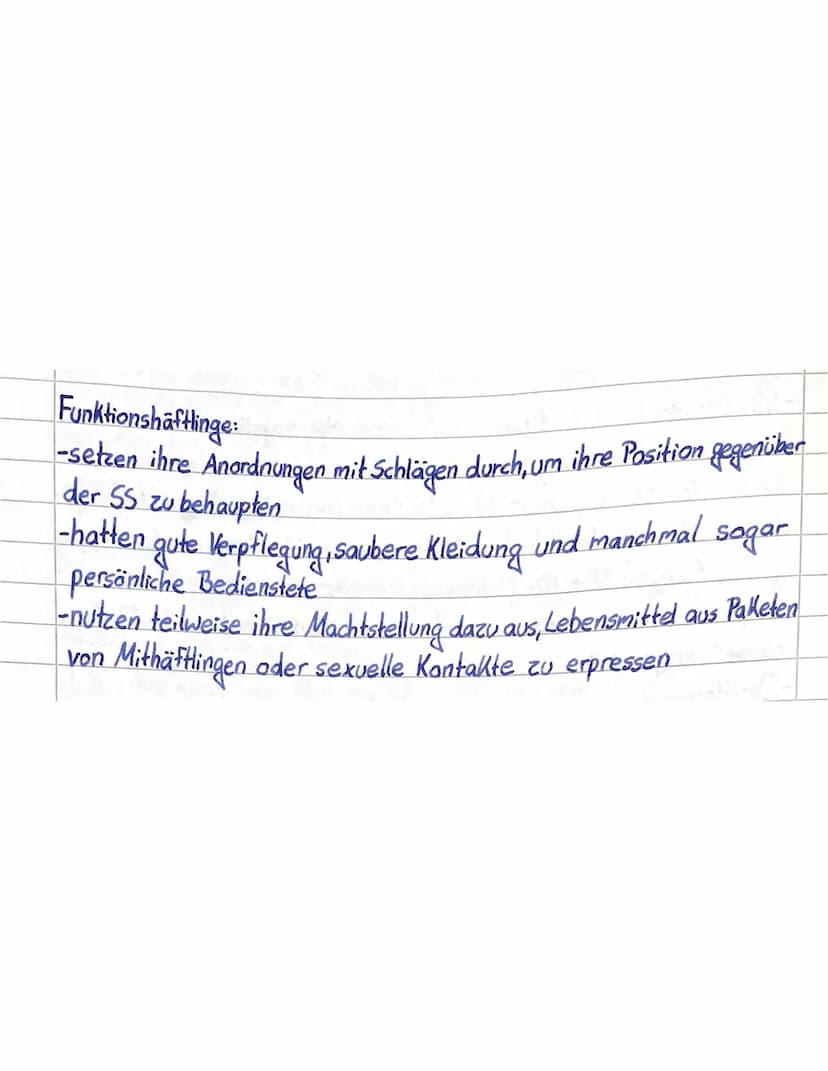 Funktionshäftlinge:
-setzen ihre Anordnungen mit Schlägen durch, um ihre Position gegenüber
der SS zu behaupten
-hatten gute Verpflegung, saubere Kleidung und manchmal sogar
persönliche Bedienstete
-nutzen teilweise ihre Machtstellung dazu aus, Lebensmittel aus Paketen
von Mithäftlingen oder sexuelle Kontakte zu erpressen